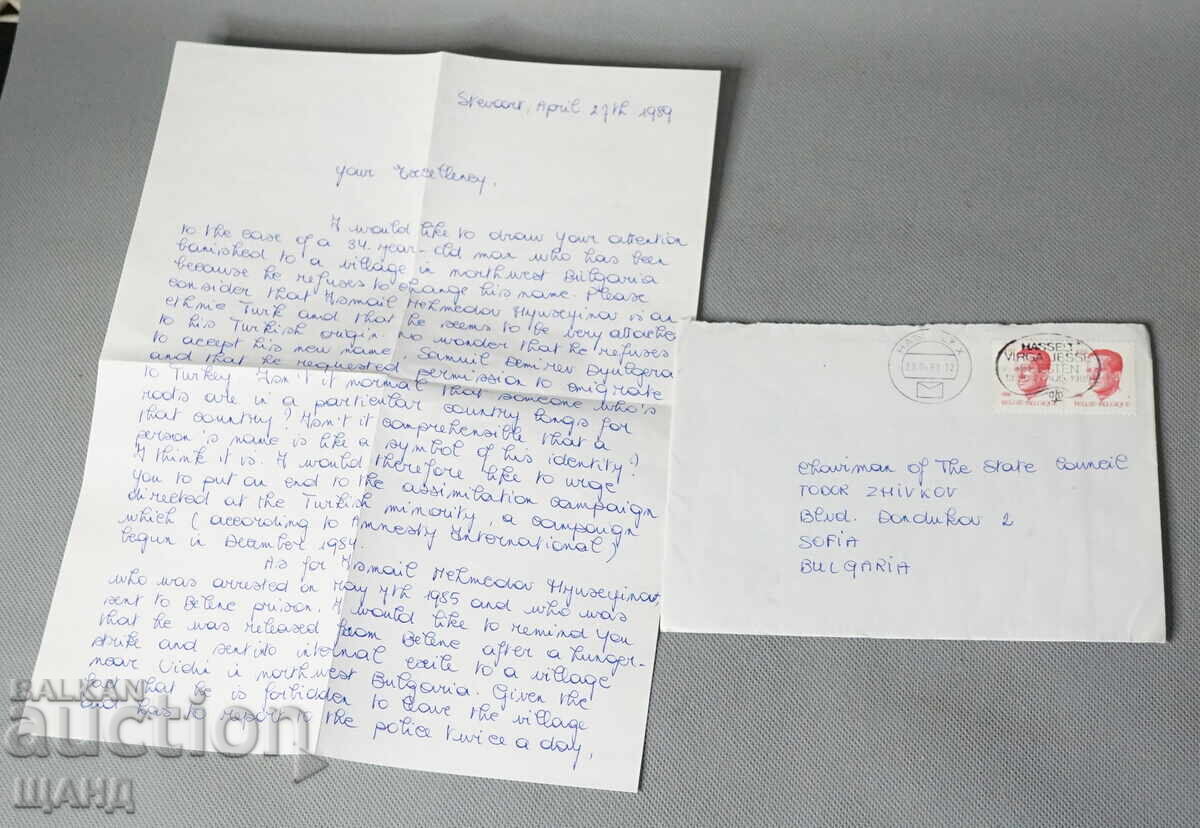 Stevoort, April 27th 1989
your Excellency,
I would like to draw your attention
to the case of a 34 year-old man who has been
banished to a village in northwest Bulgaria
because he refuses to change his name. Please
consider that Ismail Mehmedov Hyuseyinov is an
ethnic Turk and that he seems to be very attached
to his Turkish origin: no wonder that he refuses
to accept his new name, Samuil Demirev Dyulgerov
and that he requested permission to emigrate
to Turkey. Isn't it normal that someone who's
roots are in a particular country longs for
that country? Isn't it comprehensible that a
person's name is like a symbol of his identity?
I think it is. I would therefore like to urge
you to put an end to the assimilation campaign
directed at the Turkish minority, a campaign
which (according to Amnesty International)
begun in December 1984.
As for Ismail Mehmedov Hyuseyinov,
who was arrested on May 7th 1985 and who was
sent to Belene prison, I would like to remind you
that he was released from Belene after a hunger-
strike and sent into internal exile to a village
near Vidin in northwest Bulgaria. Given the
fact that he is forbidden to leave the village
and has to report to the police twice a day,
HASSELT
VIRGA JESSE
FEESTEN
BELGIE-BELGIQUE
BELGIE-BELGIQUE
Chairman of The State Council
TODOR ZHIVKOV
Blvd. Dondukov 2
SOFIA
BULGARIA
BALKAN
auction
ЩАНД